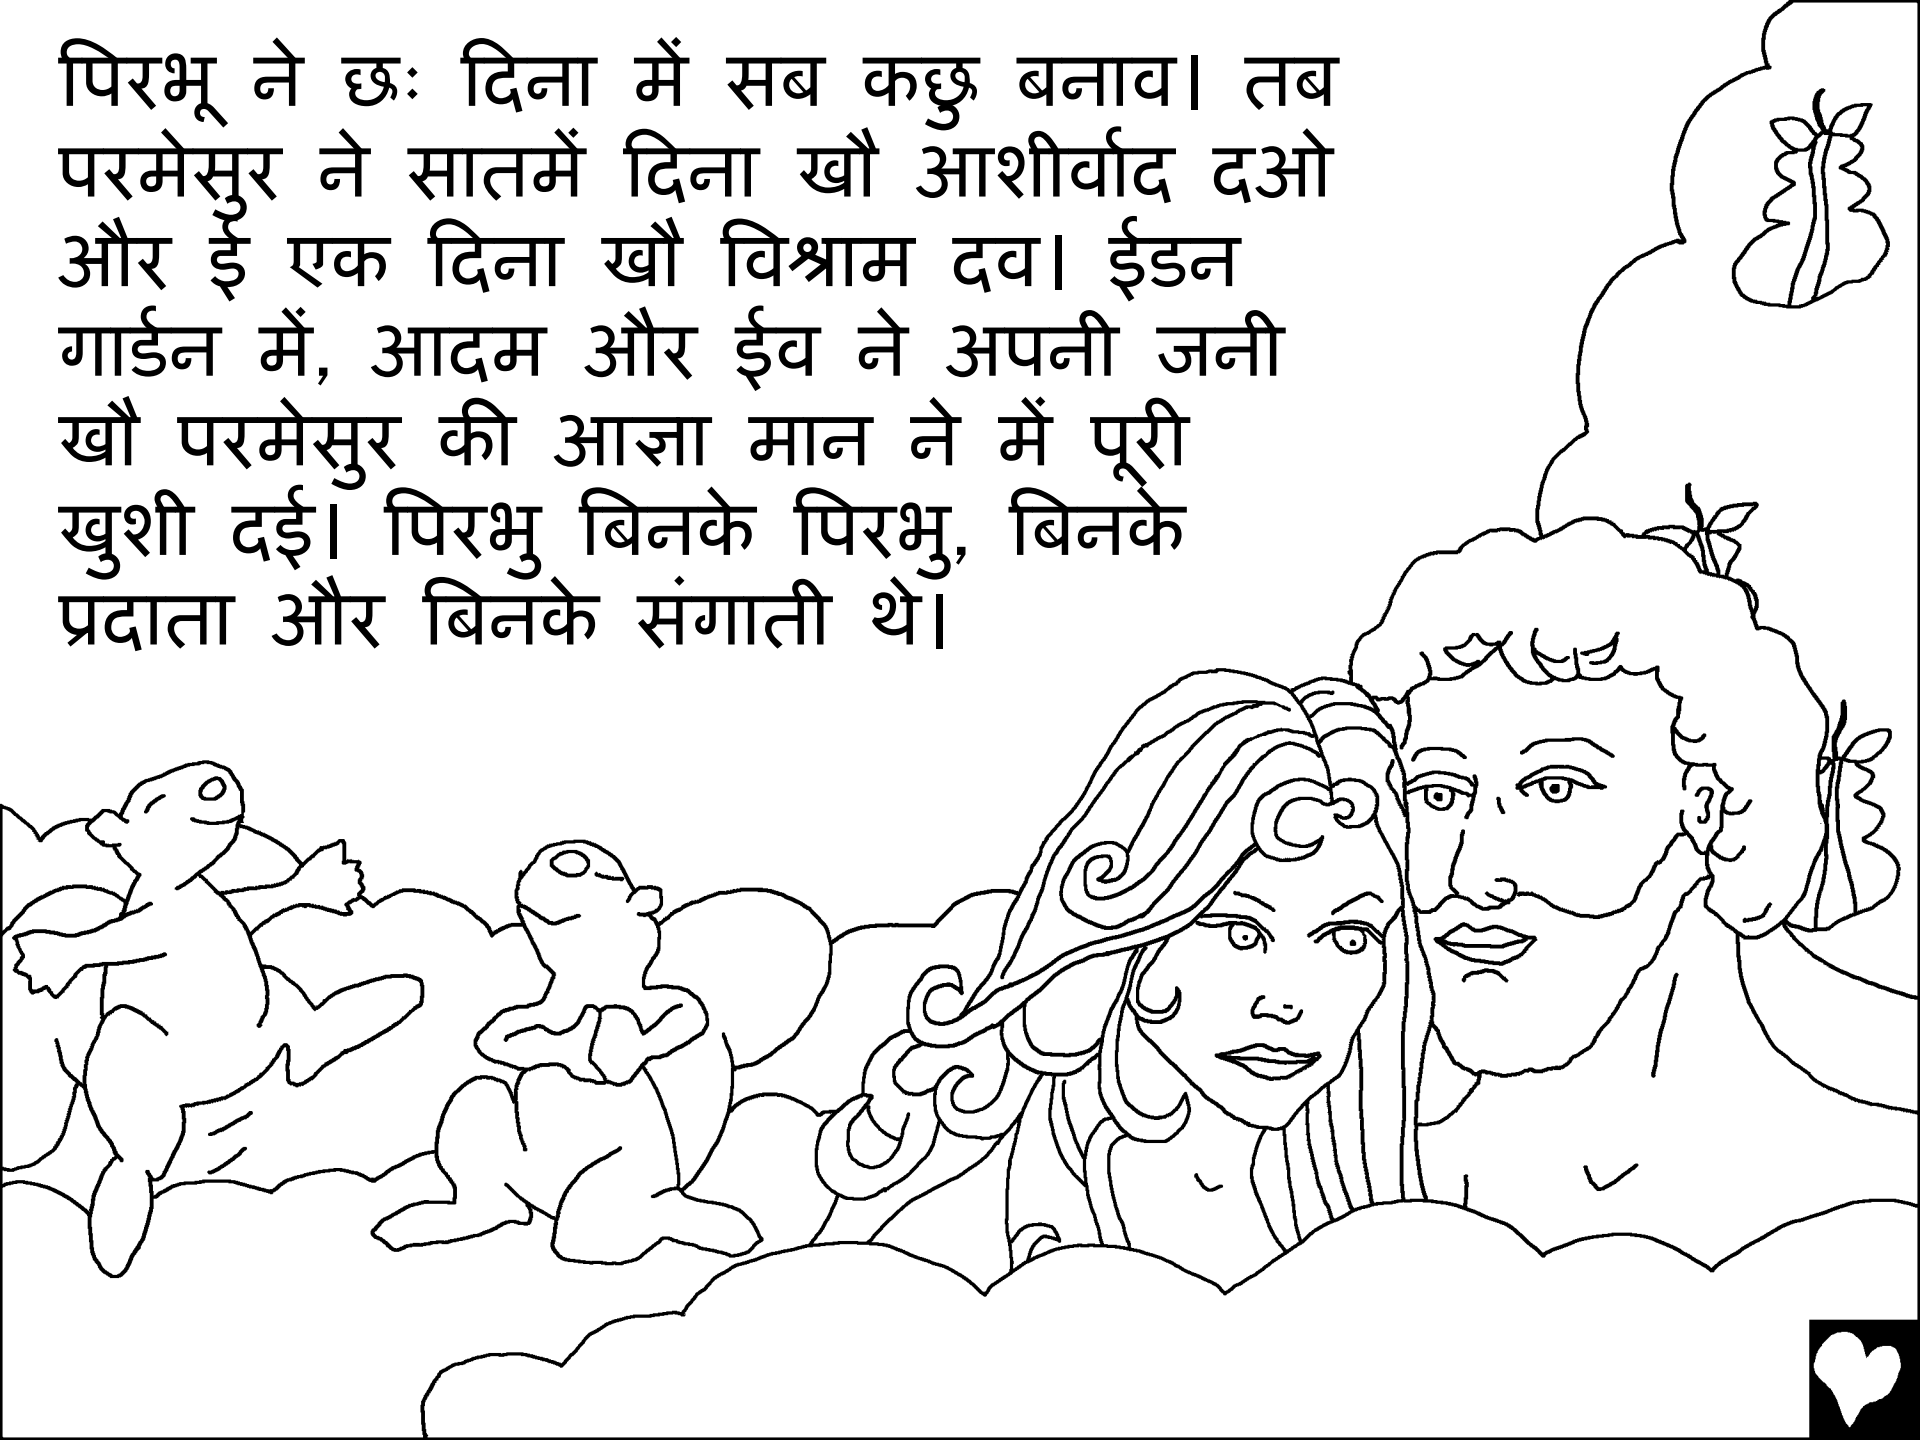 पिरभू ने छः दिना में सब कछु बनाव। तब
परमेसुर ने सातमें दिना खौ आशीर्वाद दओ
और ई एक दिना खौ विश्राम दव। ईडन
गार्डन में, आदम और ईव ने अपनी जनी
खौ परमेसुर की आज्ञा मान ने में पूरी
खुशी दई। पिरभु बिनके पिरभु, बिनके
प्रदाता और बिनके संगाती थे।